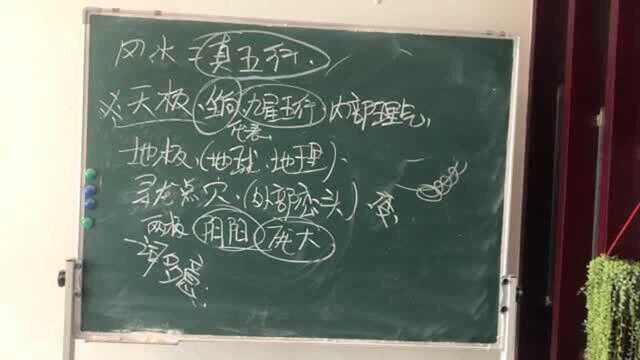 风水:真五行.
天极. 九星五行 内部理气,
代表
地极.(地球.地理).
寻龙点穴.(外部峦头)
两极 阴阳 庞大